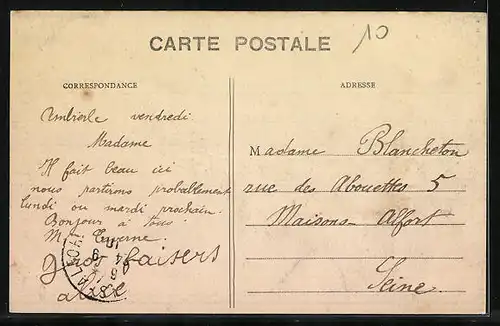 10
CARTE POSTALE
CORRESPONDANCE
Ambierle vendredi
Madame
Il fait beau ici
nous partirons probablement
lundi ou mardi prochain.
Bonjour à tous
M Taverne
gros baisers
ADRESSE
Madame Blancheton
rue des Abouettes 5
Maisons-Alfort
Seine